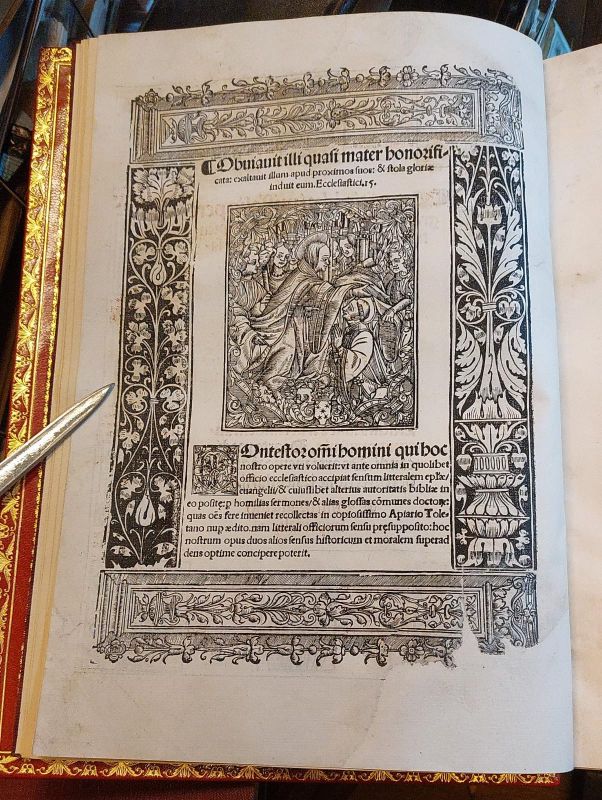 ¶Obuiauit illi quasi mater honorifi-
cata: exaltauit illum apud proximos suos: & stola gloriæ
induit eum. Ecclesiastici.15.
COntestor om̄i homini qui hoc
nostro opere vti voluerit: vt ante omnia in quolibet
officio ecclesiastico accipiat sensum litteralem epl̄æ/
euangelij/ & cuiuslibet alterius autoritatis bibliæ in
eo positę: p homilias sermones/ & alias glossas cōmunes doctoꝝ:
quas oēs fere inueniet recollectas in copiosissimo Apiario Tole
tano nup ædito. nam litterali officiorum sensu pręsupposito: hoc
nostrum opus duos alios sensus historicum et moralem superad
dens optime concipere poterit.